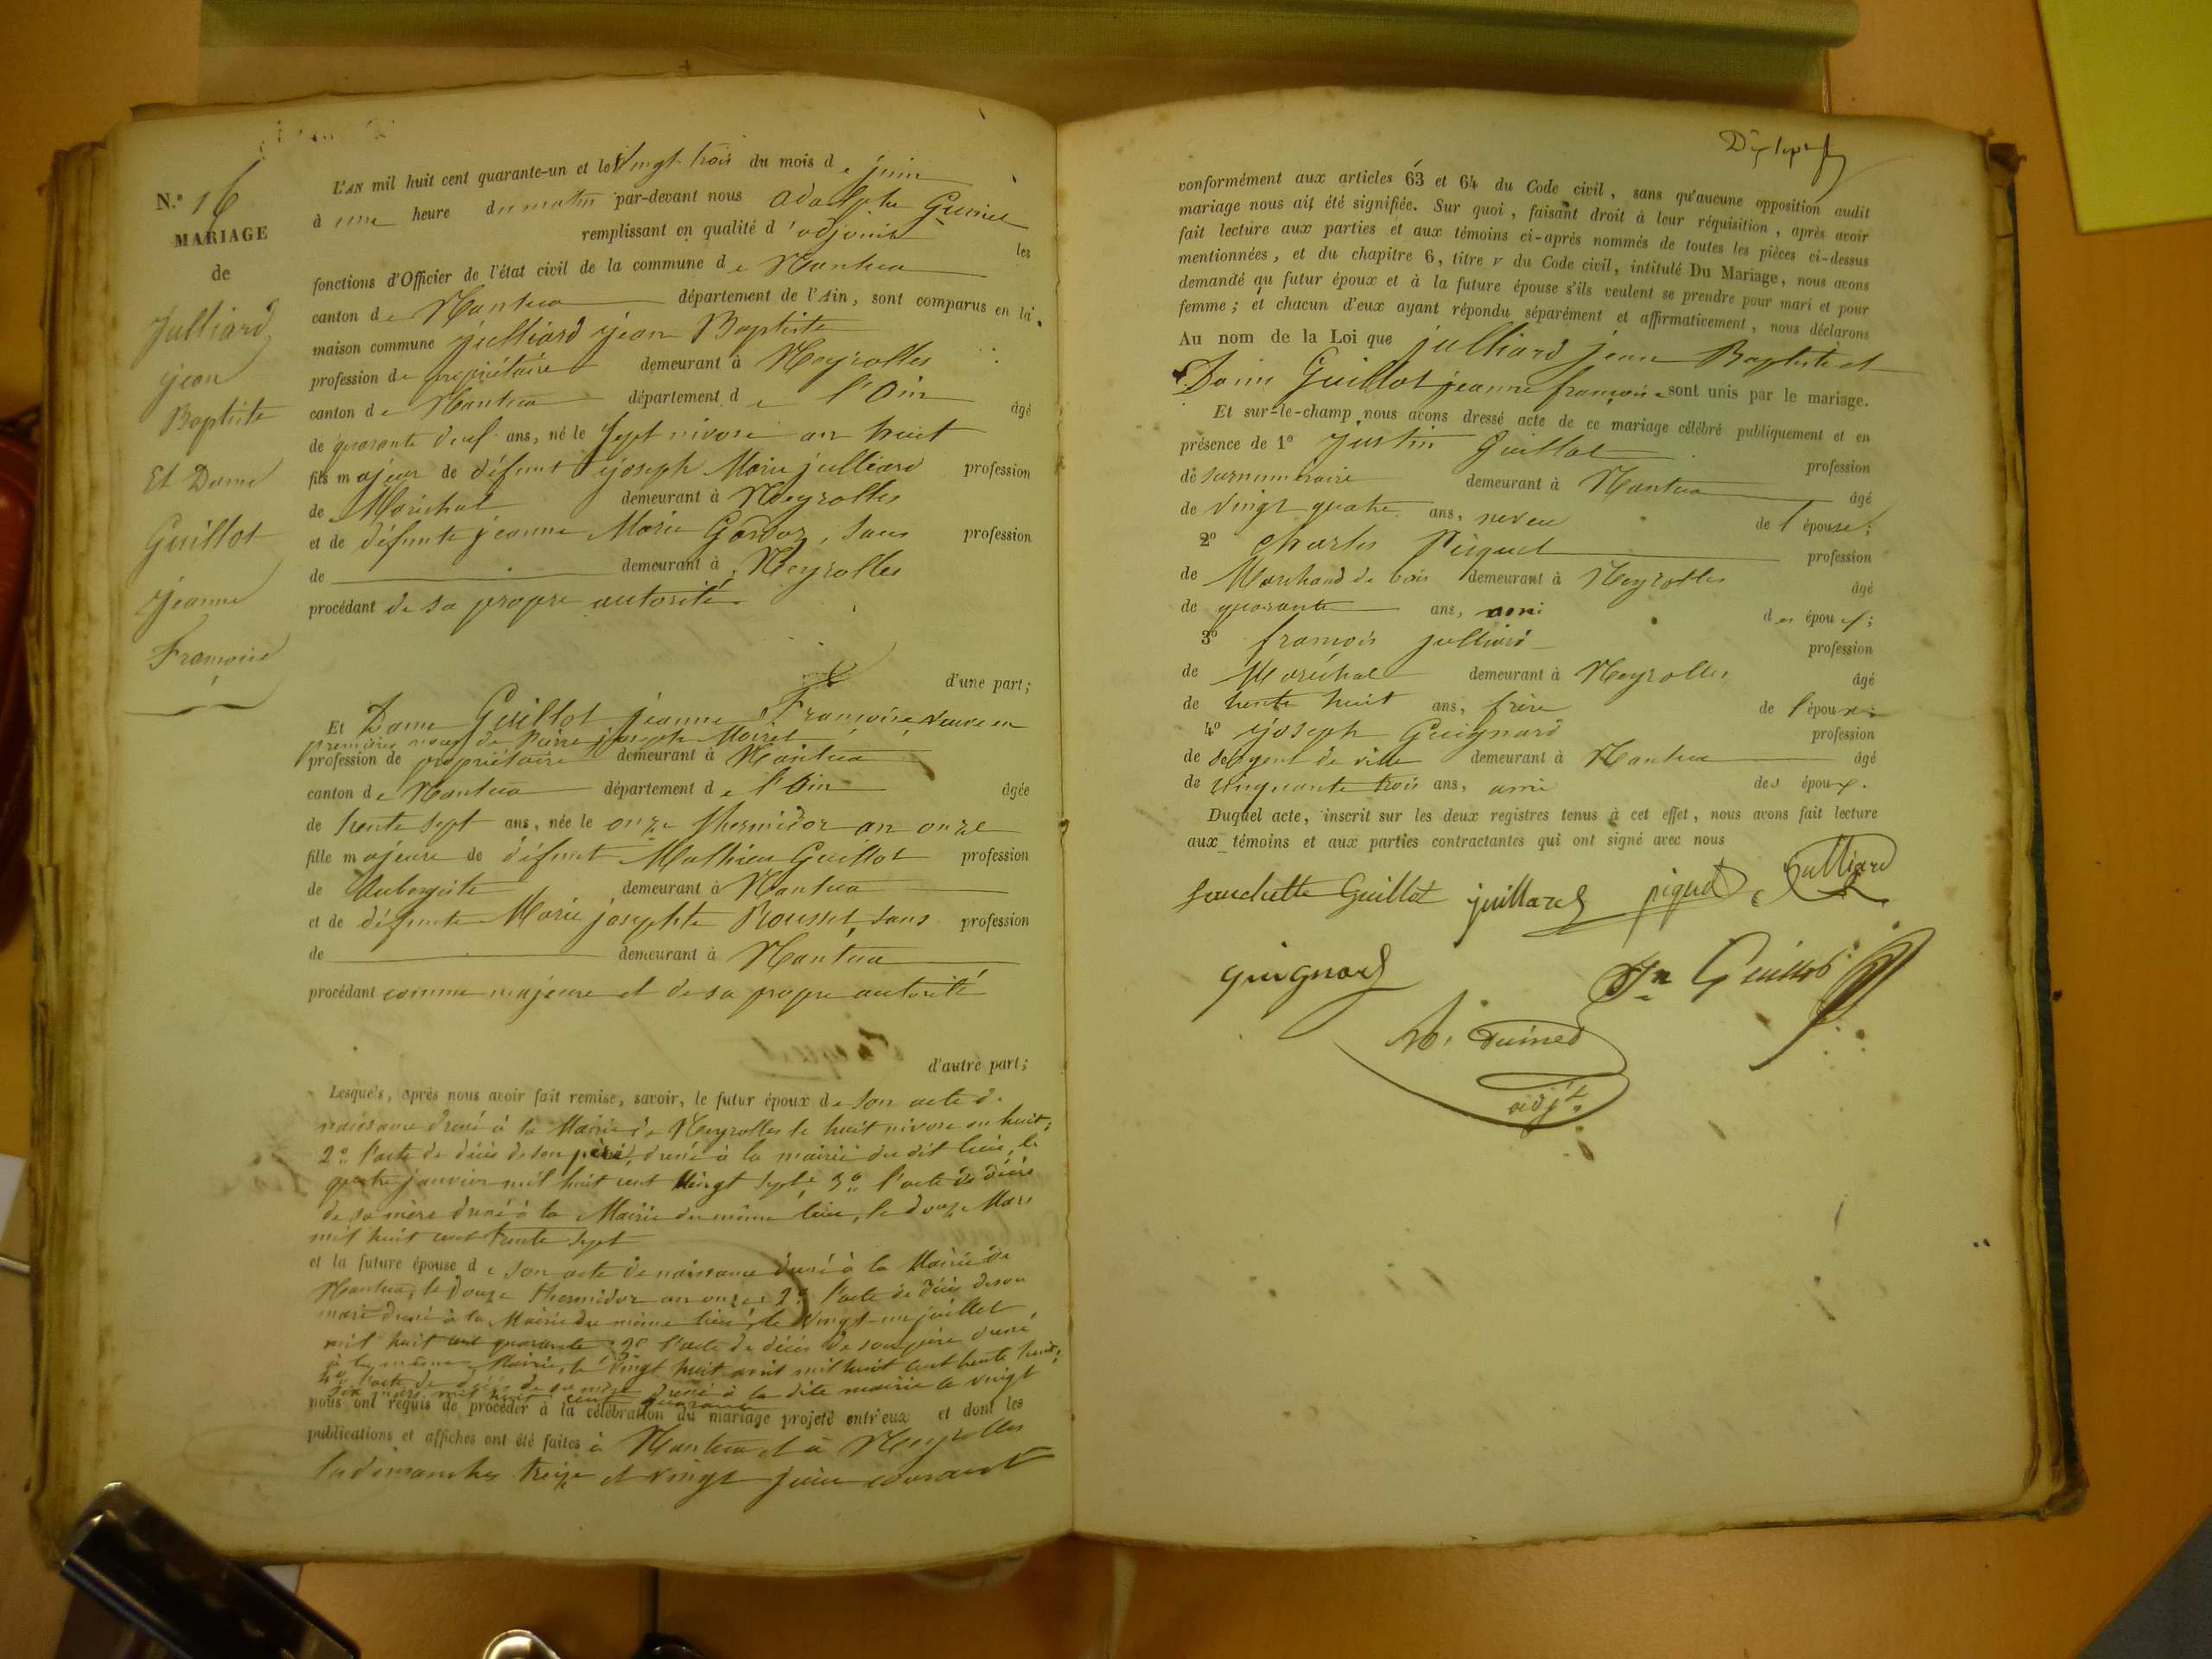 N.º 16
MARIAGE
de
Julliard
jean
Baptiste
Et Dame
Guillot
jeanne
Françoise
L'AN mil huit cent quarante-un et le vingt trois du mois de juin
à une heure du matin par-devant nous adolphe
remplissant en qualité d'adjoint les
fonctions d'Officier de l'état civil de la commune de Nantua
canton de Nantua département de l'Ain, sont comparus en la
maison commune julliard jean Baptiste
profession de propriétaire demeurant à Neyrolles
canton de Nantua département de l'Ain âgé
de quarante deux ans, né le sept nivose an huit
fils majeur de défunt joseph Marie julliard profession
de Maréchal demeurant à Neyrolles
et de défunte jeanne Marie, sans profession
de demeurant à Neyrolles
procédant de sa propre autorité
d'une part;
Et Dame Guillot jeanne Françoise veuve en
premières noces de Pierre joseph
profession de propriétaire demeurant à Nantua
canton de Nantua département de l'Ain âgée
de trente sept ans, née le onze thermidor an onze
fille majeure de défunt Mathieu Guillot profession
de Aubergiste demeurant à Nantua
et de défunte Marie josephte Rousset, sans profession
de demeurant à Nantua
procédant comme majeure et de sa propre autorité
d'autre part;
Lesquels, après nous avoir fait remise, savoir, le futur époux de son acte de
naissance dressé à la Mairie de Neyrolles le huit nivose an huit;
2º l'acte de décès de son père, dressé à la mairie du dit lieu, le
quatre janvier mil huit cent vingt sept, 3º l'acte de décès
de sa mère dressé à la Mairie du même lieu, le douze Mars
mil huit cent trente sept
et la future épouse de son acte de naissance dressé à la Mairie de
Nantua, le douze thermidor an onze; 2º l'acte de décès de son
mari dressé à la Mairie du même lieu, le vingt-un juillet
mil huit cent quarante 3º l'acte de décès de son père dressé
à la même Mairie, le vingt huit avril mil huit cent trente huit;
4º l'acte de décès de sa mère dressé à la dite mairie le vingt
six mars mil huit cent quarante
nous ont requis de procéder à la célébration du mariage projeté entr'eux et dont les
publications et affiches ont été faites à Nantua et à Neyrolles
les dimanches treize et vingt juin courant
conformément aux articles 63 et 64 du Code civil, sans qu'aucune opposition audit
mariage nous ait été signifiée. Sur quoi, faisant droit à leur réquisition, après avoir
fait lecture aux parties et aux témoins ci-après nommés de toutes les pièces ci-dessus
mentionnées, et du chapitre 6, titre v du Code civil, intitulé Du Mariage, nous avons
demandé au futur époux et à la future épouse s'ils veulent se prendre pour mari et pour
femme; et chacun d'eux ayant répondu séparément et affirmativement, nous déclarons
Au nom de la Loi que julliard jean Baptiste et
Dame Guillot jeanne françoise sont unis par le mariage.
Et sur-le-champ nous avons dressé acte de ce mariage célébré publiquement et en
présence de 1º justin Guillot profession
de surnuméraire demeurant à Nantua âgé
de vingt quatre ans, neveu de l'épouse;
2º Charles Picquet profession
de Marchand de bois demeurant à Neyrolles âgé
de quarante ans, ami des époux;
3º françois julliard profession
de Maréchal demeurant à Neyrolles âgé
de trente huit ans, frère de l'époux;
4º joseph Guignard profession
de sergent de ville demeurant à Nantua âgé
de cinquante trois ans, ami des époux.
Duquel acte, inscrit sur les deux registres tenus à cet effet, nous avons fait lecture
aux témoins et aux parties contractantes qui ont signé avec nous
Guillot juillard piquet Julliard
guignard Jn Guillot
adjt.